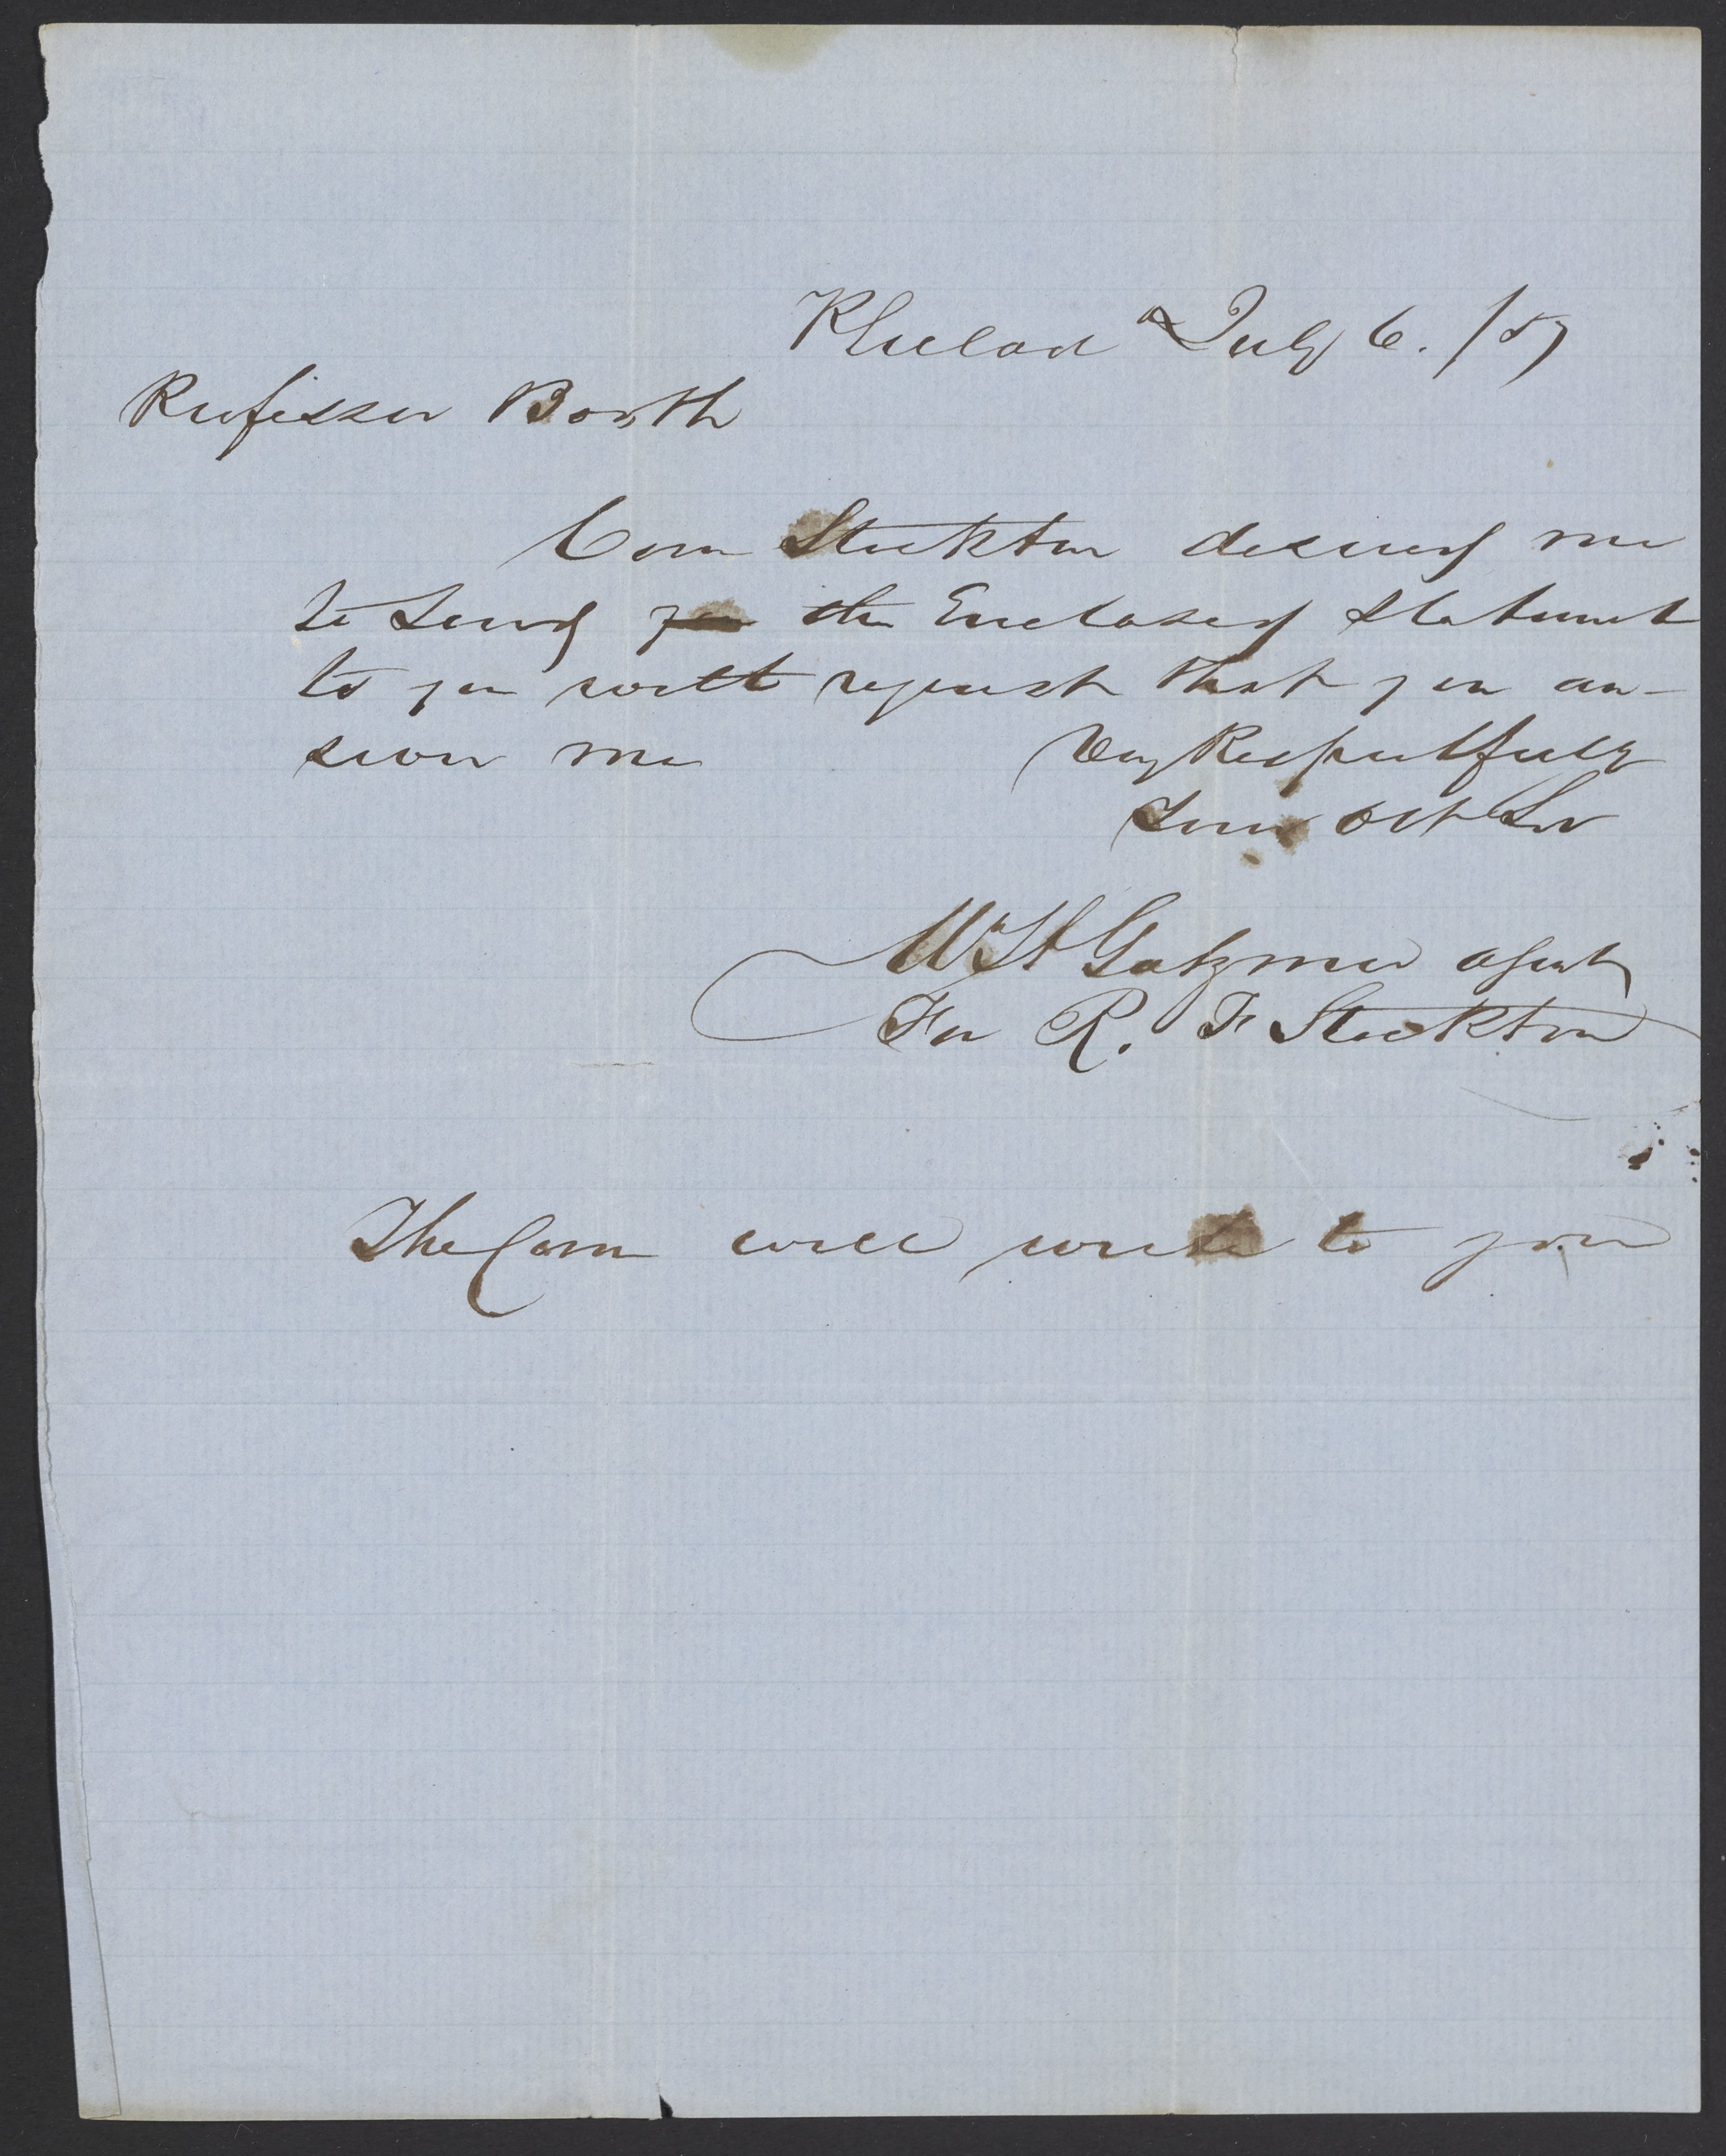 Philad a July 6. /57
Professor Booth
Com Stockton desired me
to send you the Enclosed statement
to you with request that you an-
swer me Very Respectfully
Your Obt Sv
Wm H Gatzmer agent
For R. F Stockton
The Com will write to you